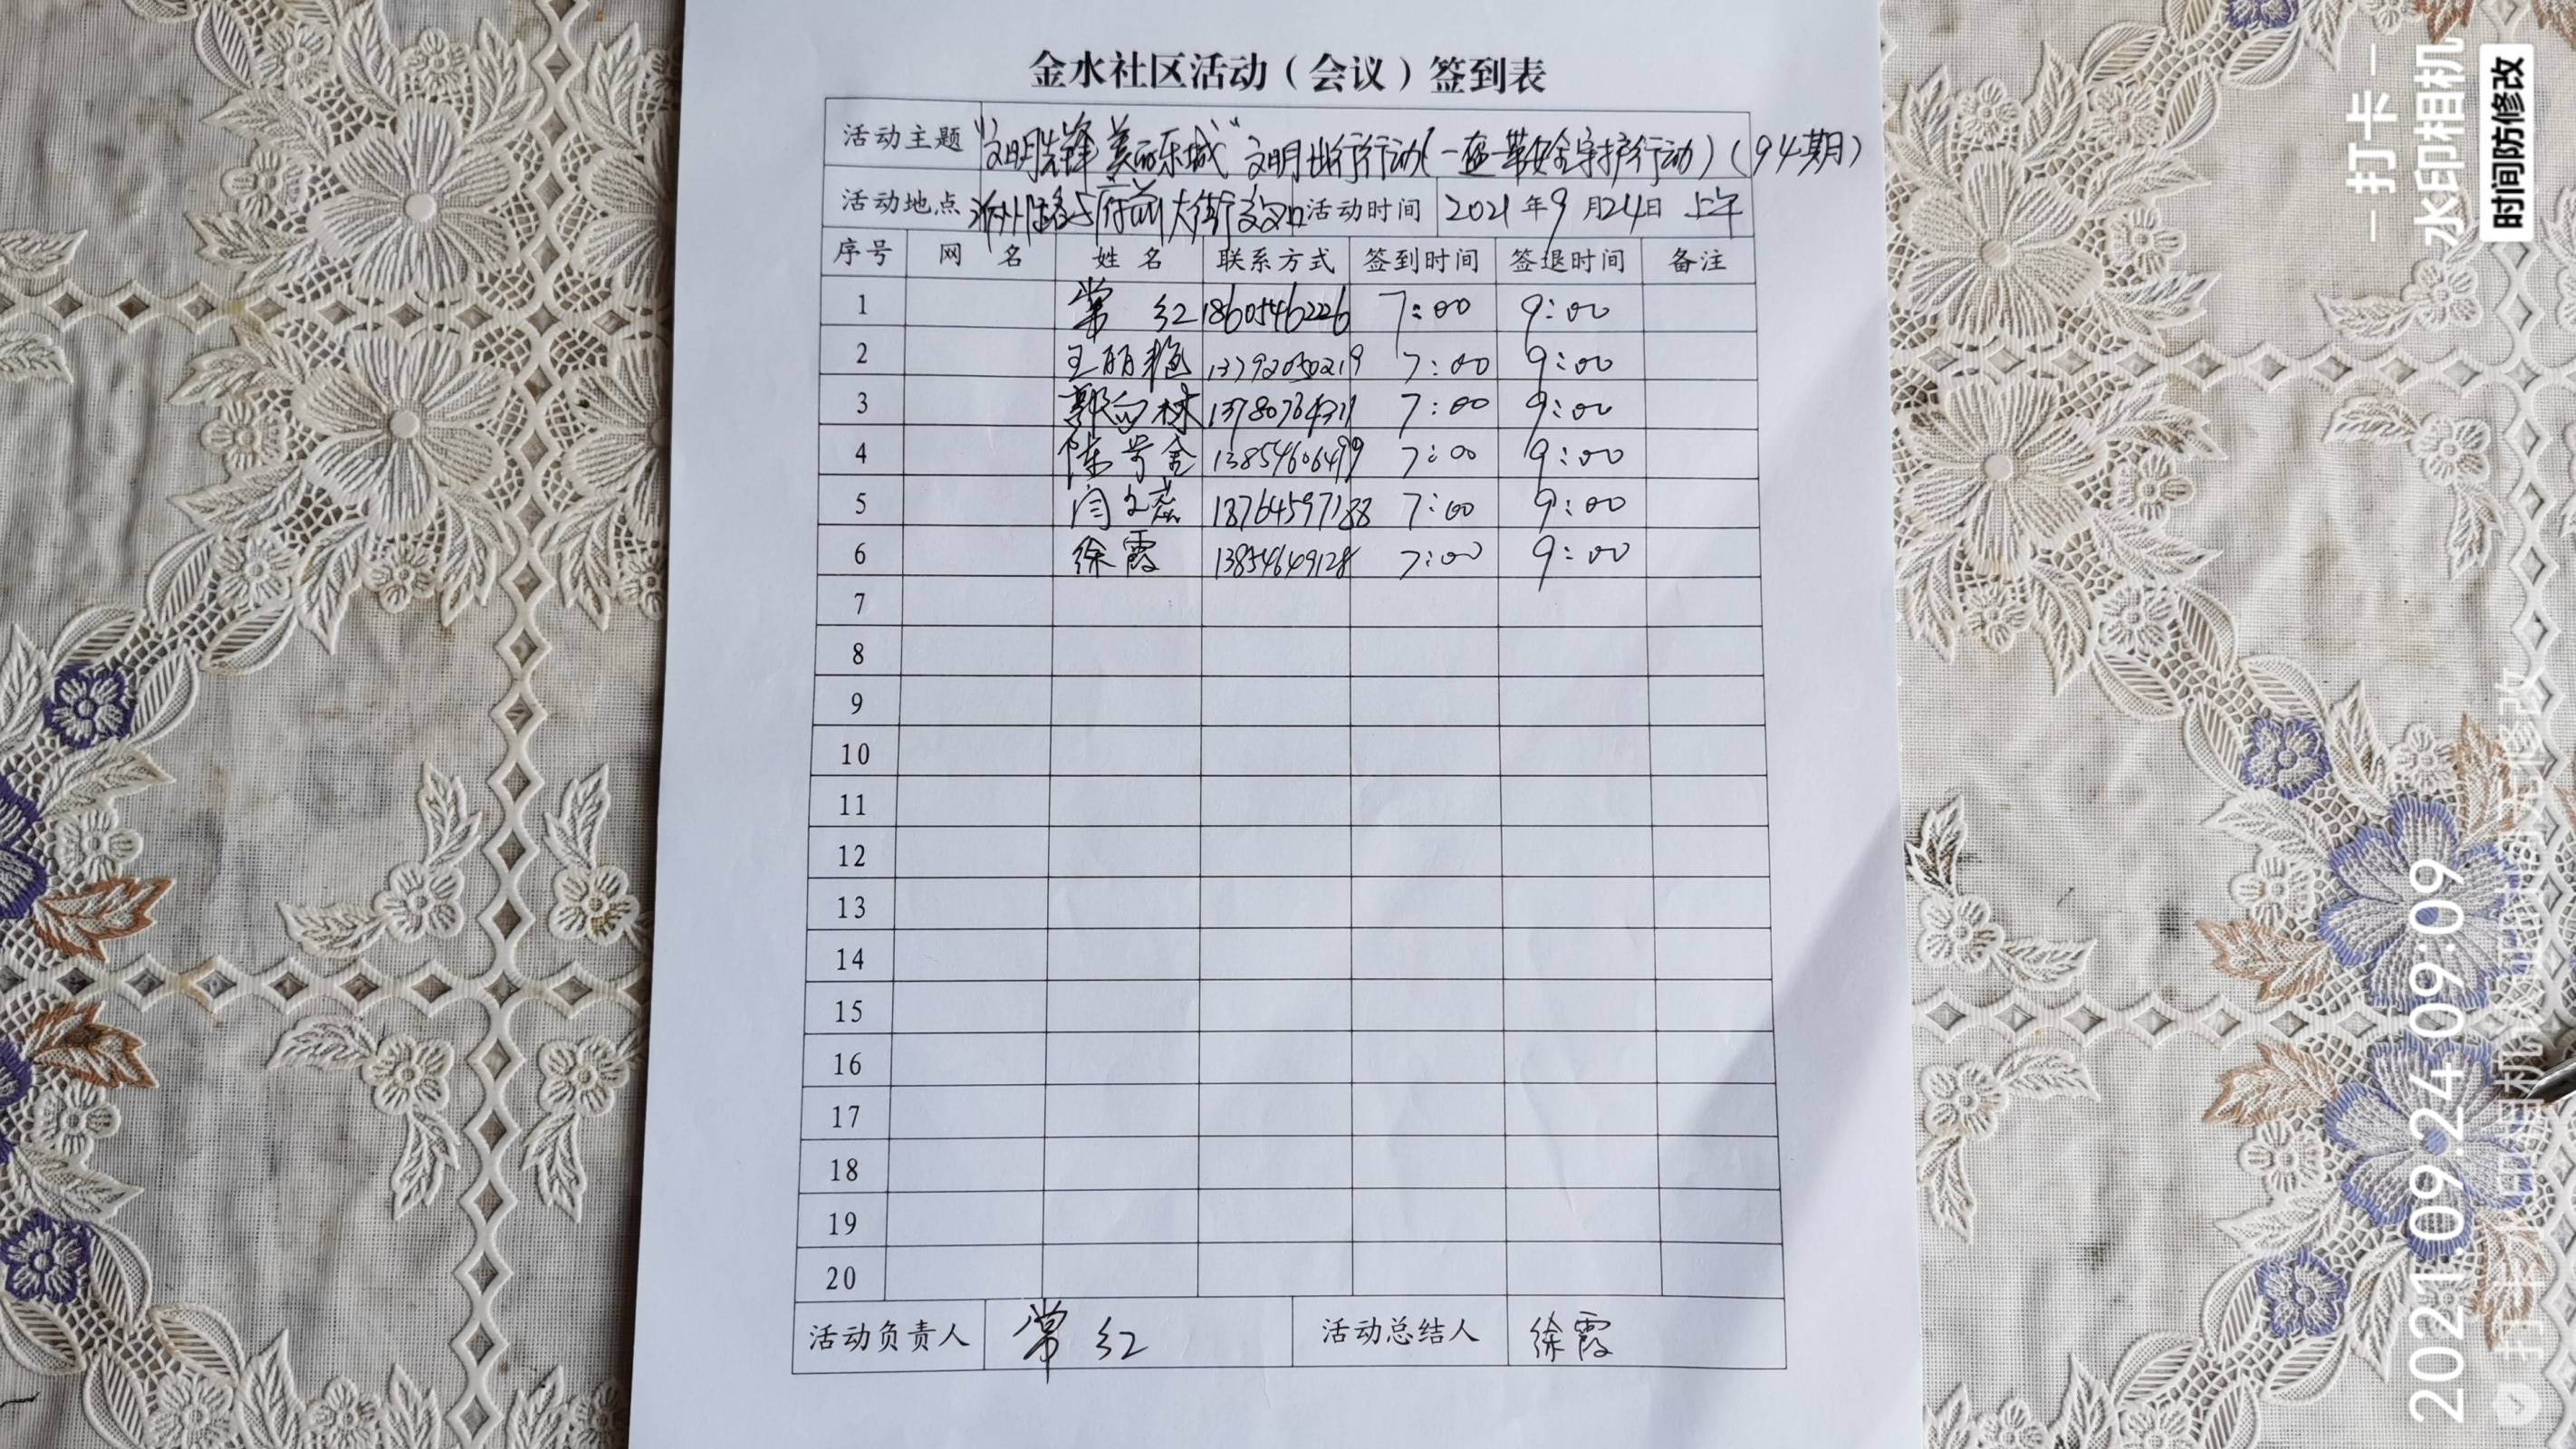 金水社区活动（会议）签到表
活动主题 "文明先锋 美丽东城" 文明出行行动(一盔一带安全守护行动)(94期)
活动地点 沂州路与府前大街交叉口 活动时间 2021年9月24日 上午
序号 网 名 姓 名 联系方式 签到时间 签退时间 备注
1 常 红 18605462226 7:00 9:00
2 王丽艳 13792050219 7:00 9:00
3 郭向林 13780764311 7:00 9:00
4 陈 金 13854606499 7:00 9:00
5 闫文蕊 18764597188 7:00 9:00
6 徐霞 13854649128 7:00 9:00
7
8
9
10
11
12
13
14
15
16
17
18
19
20
活动负责人 常 红 活动总结人 徐霞
一打卡一
水印相机
时间防修改
2021.09.24 09:09